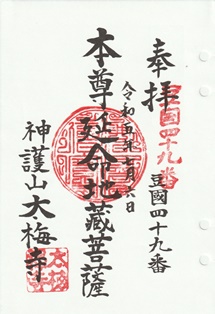 奉拝
豆國四十九番
豆國四十九番
令和五年七月六日
本尊延命地蔵菩薩
神護山大梅寺